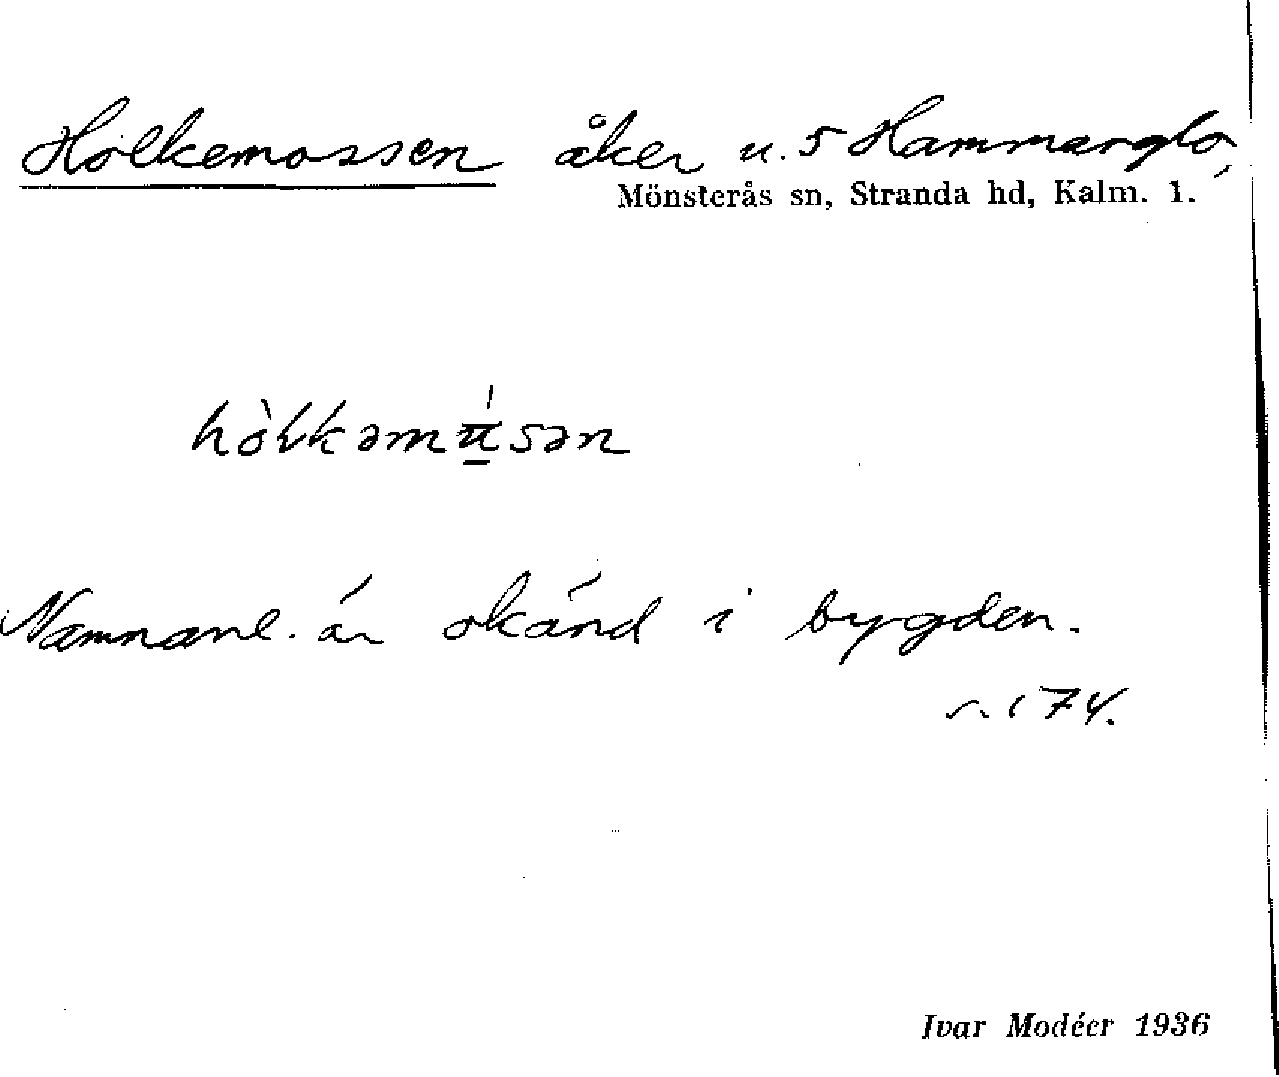 Holkemossen åker u. 5 Hammarglo,
Mönsterås sn, Stranda hd, Kalm. l.
Namnanl. är okänd i bygden.
s. 174.
Ivar Modéer 1936